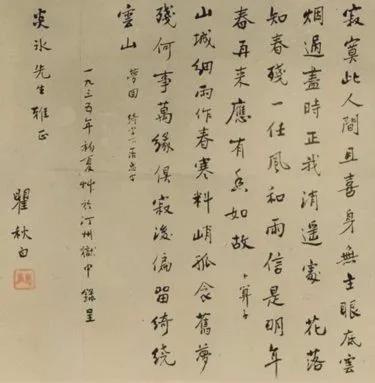 寂寞此人間且喜身無主眼底雲
烟過盡時正我消遥處 花落
知春殘一任風和雨信是明年
春再来應有香如故 卜算子
山城細雨作春寒料峭孤衾舊夢
殘何事萬緣俱寂後偏留綺繞
雲山 夢回 綺字下落思字
一九三五年初夏艸於汀州獄中 錄呈
炎冰先生雅正
瞿秋白